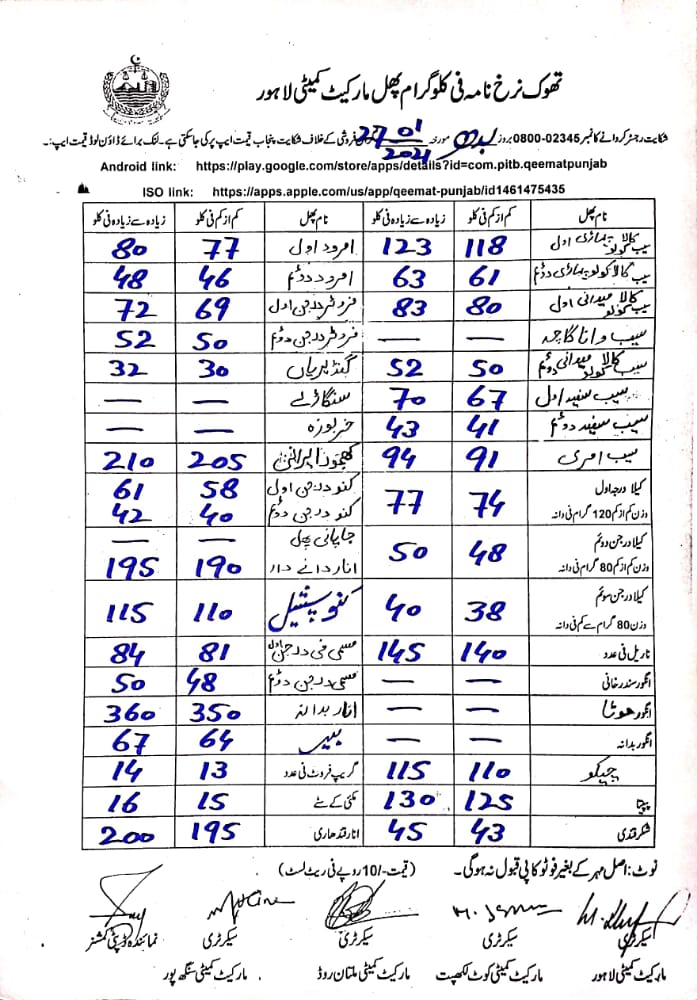 تھوک نرخ نامہ فی کلوگرام پھل مارکیٹ کمیٹی لاہور
شکایت رجسٹر کروانے کا نمبر 02345-0800 بروز بدھ مورخہ 27-01-2021 گراں فروشی کے خلاف شکایت پنجاب قیمت ایپ پر کی جا سکتی ہے۔ لنک برائے ڈاؤن لوڈ قیمت ایپ:۔
Android link: https://play.google.com/store/apps/details?id=com.pitb.qeematpunjab
ISO link: https://apps.apple.com/us/app/qeemat-punjab/id1461475435
نام پھل کم از کم فی کلو زیادہ سے زیادہ فی کلو نام پھل کم از کم فی کلو زیادہ سے زیادہ فی کلو
سیب کالا کولو پہاڑی اول 118 123 امرود اول 77 80
سیب کالا کولو پہاڑی دوئم 61 63 امرود دوئم 46 48
سیب کالا کولو میدانی اول 80 83 فروٹر درجن اول 69 72
سیب وانا گاچہ — — فروٹر درجن دوئم 50 52
سیب کالا کولو میدانی دوئم 50 52 گنڈیریاں 30 32
سیب سفید اول 67 70 سنگاڑے — —
سیب سفید دوئم 41 43 خربوزہ — —
سیب امری 91 94 کھجور ایرانی 205 210
کیلا درجن اول وزن کم از کم 120 گرام فی دانہ 74 77 کنو درجن اول 58 61
کنو درجن دوئم 40 42
کیلا درجن دوئم وزن کم از کم 80 گرام فی دانہ 48 50 جاپانی پھل — —
انار دانے دار 190 195
کیلا درجن سوئم وزن 80 گرام سے کم فی دانہ 38 40 کنو سپیشل 110 115
ناریل فی عدد 140 145 مسمی فی درجن اول 81 84
انگور سندرخانی — — مسمی درجن دوئم 48 50
انگور موٹا — — انار بدانہ 350 360
انگور بدانہ — — بیر 64 67
چیکو 110 115 گریپ فروٹ فی عدد 13 14
پپیتا 125 130 مکئی کے سٹے 15 16
شکر قندی 43 45 انار قندھاری 195 200
نوٹ: اصل مہر کے بغیر فوٹو کاپی قبول نہ ہوگی۔ (قیمت -/10 روپے فی ریٹ لسٹ)
سیکرٹری سیکرٹری سیکرٹری سیکرٹری نمائندہ ڈپٹی کمشنر
مارکیٹ کمیٹی لاہور مارکیٹ کمیٹی کوٹ لکھپت مارکیٹ کمیٹی ملتان روڈ مارکیٹ کمیٹی سنگھ پور